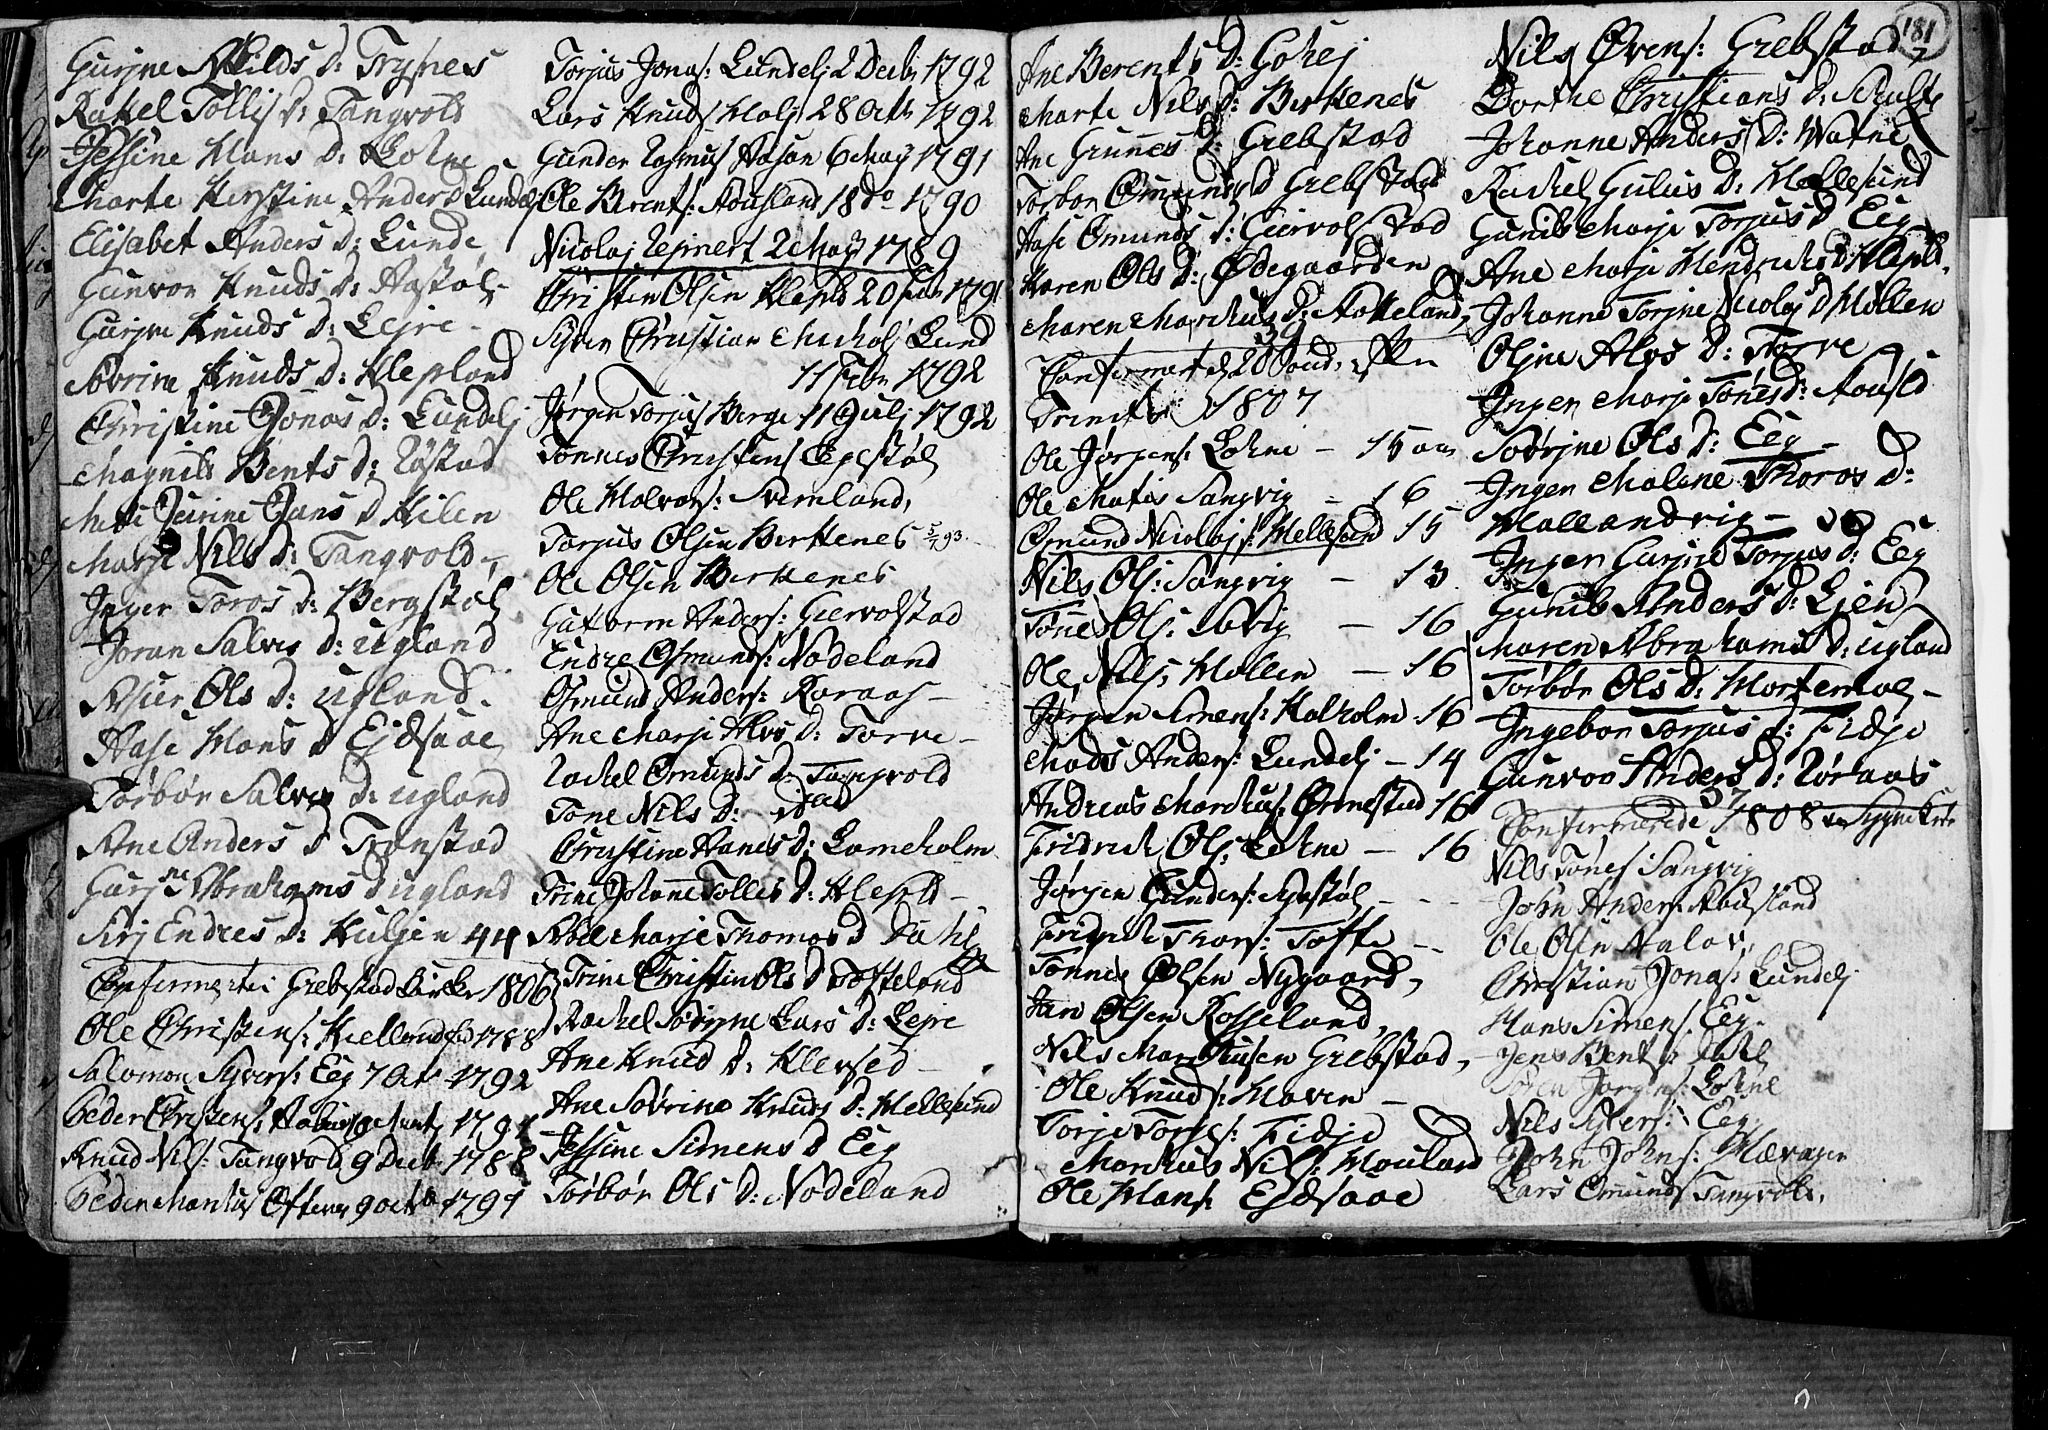 Gurine Askilds D: Trysnes
Rakel Tollis D: Tangvold
Jessine Hans D: Lohne
Marte Kirstine Anders D Lundelj
Elisabet Anders D: Lunde
Gunvor Knuds D: Aastøl
Gurine Knuds D: Lejre
Sövrine Knuds D: Klepland
Christine Jonas D: Lundelj
Magnild Bents D: Røstad
Mette Jans D Kilen
Marje Nils D: Tangvold
Inger Toros D: Bergstøl
Joran Salves D: Ugland
Asur Ols D: Ugland
Aase Hans D Ejdsaae
Torbør Salves D: Ugland
Ane Anders D Tronstad
Gurine Abrahams D Ugland
Sirj Endres D: Kuljen 44
Confirmerte i Grebstad Kirke 1806
Ole Christens: 1788
Salomon Syvers: Eeg 7 Oct 1792
Peder Christens: 1791
Knud Nils: Tangvold 9 Decbr 1788
Peder Markus 9 Octb 1791
Torjus Jonas: Lundelj 2 Decbr 1792
Lars Knuds Holj 28 Octb 1792
Gunder Rasmus Aasan 6 Maj 1791
Ole Berents: Aousland 18 do 1790
Nicolaj Rejnert 2 Maj 1789
Christen Olsen Klepld 20 Jan 1791
Syver Christian Lund
11 Febr 1792
Jørgen Torjus Berge 11 Julj 1792
Tønnes Christens Repstøl
Ole Halvors: Svemland
Torjus Olsen Birkenes 5/7 93
Ole Olsen Birkenes
Gutorm Anders: Giervolstad
Endre Osmunds: Nodeland
Osmund Anders: Roraas
Ane Marje Alvs D: Torve
Rachel Omunds D: Tangvold
Tone Nils D:
Christine Hanes D: Lomeholm
Trine Johanne Tollis D: Klepld
Abel Marje Thomas D Dahl
Trine Christin Ols D Tofteland
Rachel Sövrine Lars D: Lejre
Ane Knud D: Klevsed
Ane Sövrine Knuds D: Hellesund
Jessine Simens D Eeg
Torbør Ols D: Nodeland
Ane Berents D: Gohej
Marte Nils D: Birkenes
Ane Gunnes D: Grebstad
Torbor Omunds D Grebstad
Aase Omunds D: Giervolstad
Karen Ols D: Ødegaarden
Maren Markus D: Nolleland
39
Confirmert d. 20 Sønd. efter
Trinit: 1807
Ole Jørgens: Lohne - 15 aar
Ole Matis Sangvig - 16
Omund Nicolajs: Hellesund 15
Nils Ols: Sangvig - 13
Tønes Ols: - 16
Ole Nils: Møllen - 16
Jørgen Simens: Kalholm 16
Mads Anders: Lundelj - 14
Andreas Markus: Ørnestad 16
Fridrich Ols: Lohne - 16
Jørgen Gunders:
Fridrich Thors: Tofte
Tønnes Olsen Nygaard
Jan Olsen Rosseland
Nils Martinsen Grebstad
Ole Knuds: Haven
Torje Torjes: Fidje
Markus Nils: Houland
Ole Hans: Ejdsaae
181
Nils Ovens: Grebstad
Dorthe Christians D: Schulte
Johanne Anders D: Watne
Rachel Gulius D: Hellesund
Gunild Marje Torjus D Eeg
Ane Marje Hendrichs D Klepld
Johanne Torine Nicolajs D Møllen
Oline Alvs D: Torve
Ingen Marje Tønes D: Aousld
Sövrine Ols D: Eeg
Ingen Malene Thoras D:
Hallandvig
Inger Gurine Torjus D: Eeg
Gunild Anders D: Ejen
Maren Abrahams D: Ugland
Torbør Ols D: Hortemoel
Ingebor Torjus D: Fidje
Gunvor Anders D: Röraas
37
Confirmerede 1808 i Sygne Kirke
Nils Tønes: Sangvig
John Anders: Aousland
Ole Olsen
Christian Jonas: Lundelj
Hans Simens: Eeg
Jens Bents: Dahl
Jørgens: Lohne
Nils Syvers: Eeg
John Johns:
Lars Omunds Tangvold